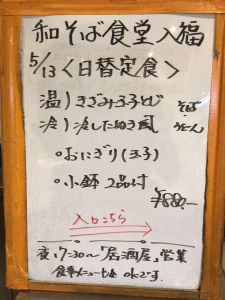 和そば食堂入福
5/13〈日替定食〉
温)きざみ玉子とじ
冷)冷したぬき風
そば
うどん
○おにぎり(玉子)
○小鉢2品付
¥880-
入口こちら
夜、7:30〜「居酒屋」営業
食事メニューも OKです。